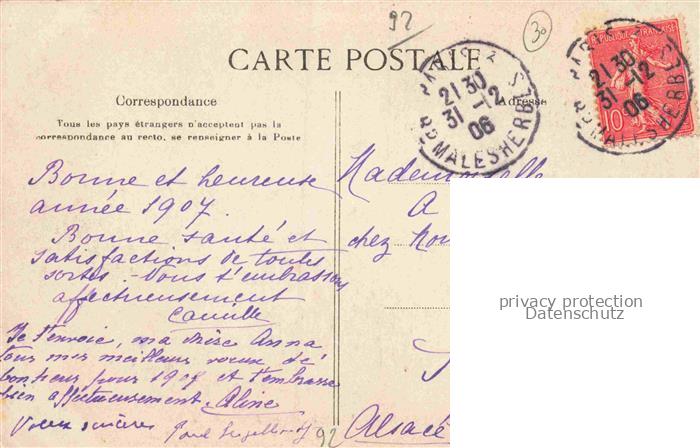 92
30
CARTE POSTALE
Correspondance
Adresse
Tous les pays étrangers n'acceptent pas la
correspondance au recto, se renseigner à la Poste
REPUBLIQUE FRANÇAISE
10
21 30
31 -12
06
BD MALESHERBES
21 30
31 -12
06
BD MALESHERBES
Bonne et heureuse
année 1907.
Bonne santé et
satisfactions de toutes
sortes. Nous t'embrassons
affectueusement
Camille
Je t'envoie, ma chère Anna
tous mes meilleurs voeux de
bonheur pour 1907 et t'embrasse
bien affectueusement. Aline
Voeux sincères
Paul
92
Mademoiselle
A
chez
Alsace
privacy protection
Datenschutz